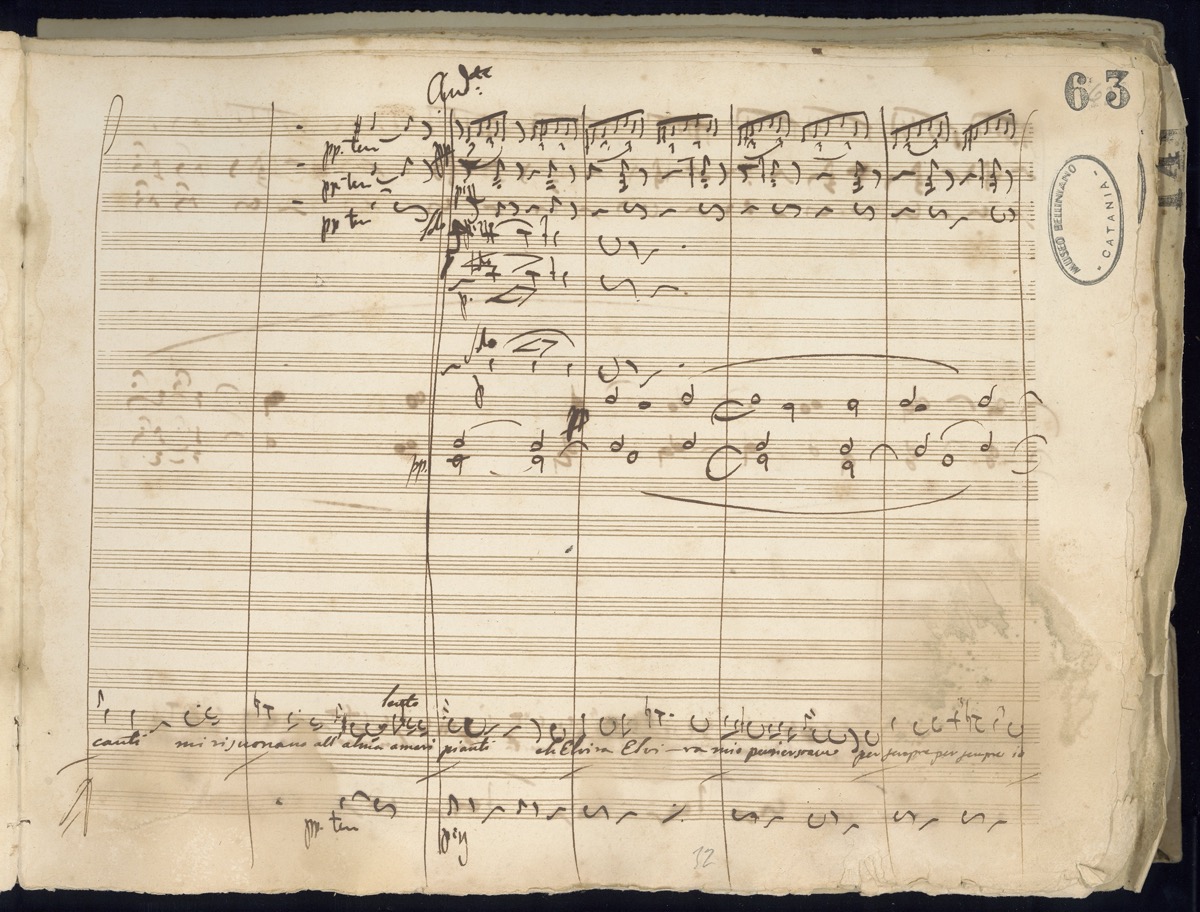 And.te
63
pp. ten
pp. ten
pp. ten
MUSEO BELLINIANO
- CATANIA -
solo
p.
solo
pp
pp.
lento
canti mi risuonano all'alma amari pianti oh Elvira Elvi-ra mio pensier soave per sempre per sempre io
pp. ten
piz
32